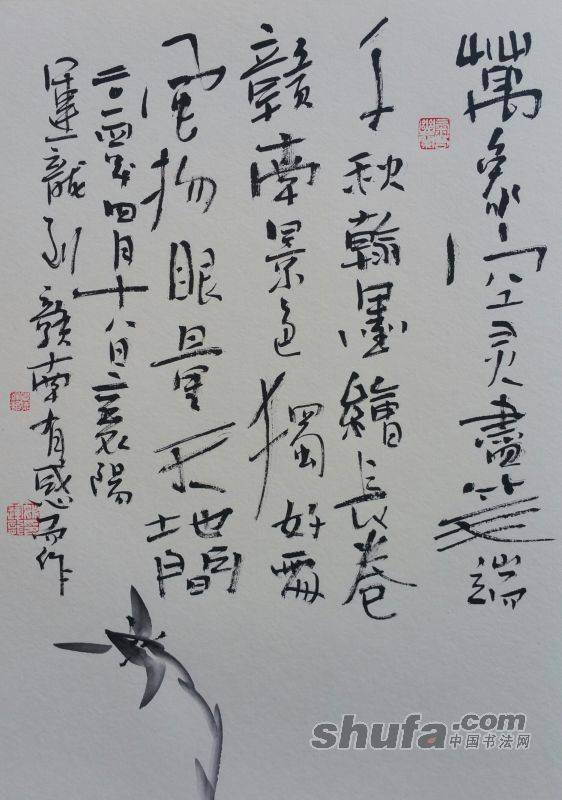 萬象空灵盡筆端
千秋翰墨繪長卷
贛南景色獨好
風物眼量天地間
二〇一四年四月十八日襄陽
龍到贛南有感而作
shufa.com
中国书法网